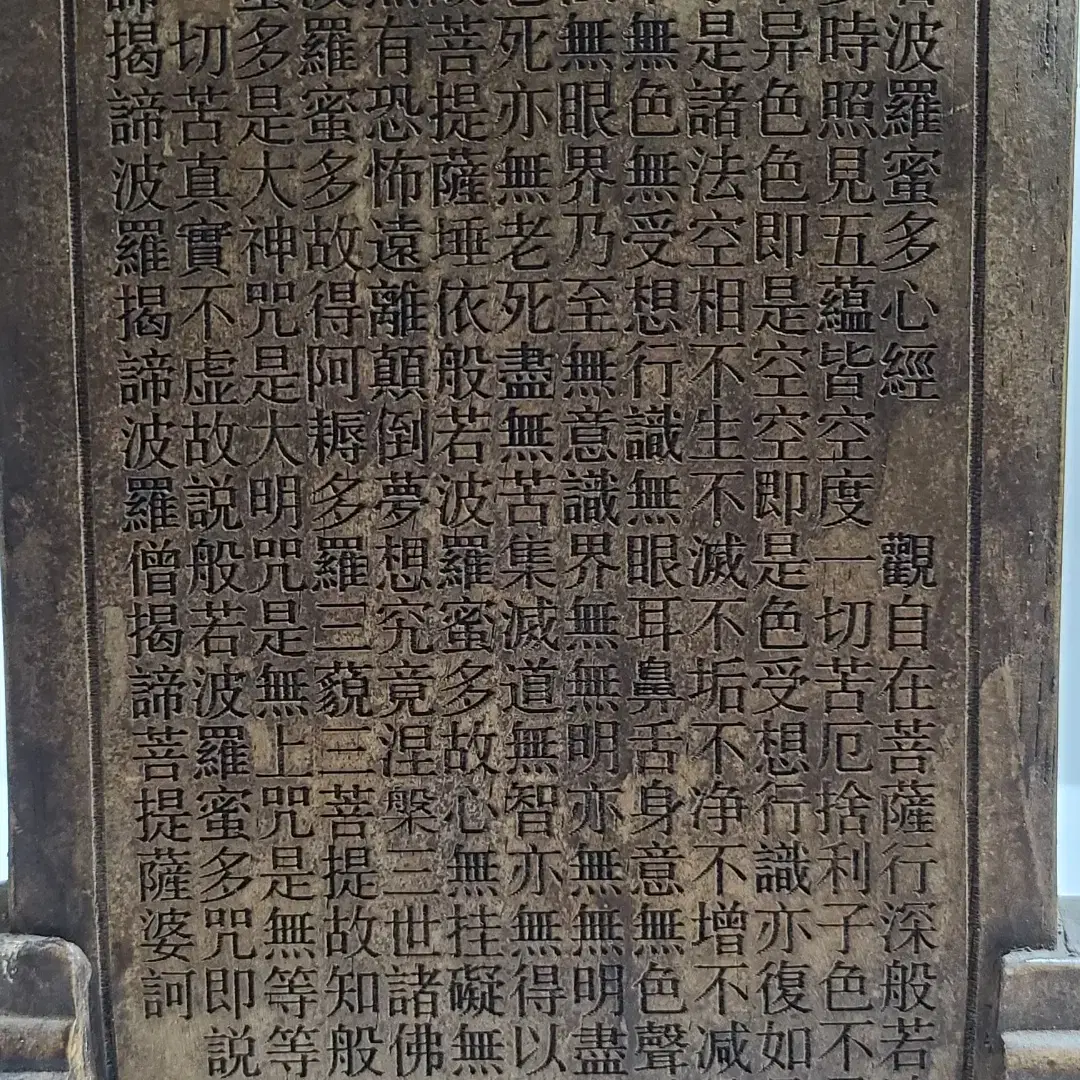 若波羅蜜多心經 觀自在菩薩行深般若
時照見五蘊皆空度一切苦厄捨利子色不
异色色即是空空即是色受想行識亦復如
是諸法空相不生不滅不垢不净不增不减
無色無受想行識無眼耳鼻舌身意無色聲
無眼界乃至無意識界無無明亦無無明盡
死亦無老死盡無苦集滅道無智亦無得以
菩提薩埵依般若波羅蜜多故心無挂礙無
有恐怖遠離顛倒夢想究竟涅槃三世諸佛
羅蜜多故得阿耨多羅三藐三菩提故知般
蜜多是大神咒是大明咒是無上咒是無等等
切苦真實不虚故説般若波羅蜜多咒即説
諦揭諦波羅揭諦波羅僧揭諦菩提薩婆訶